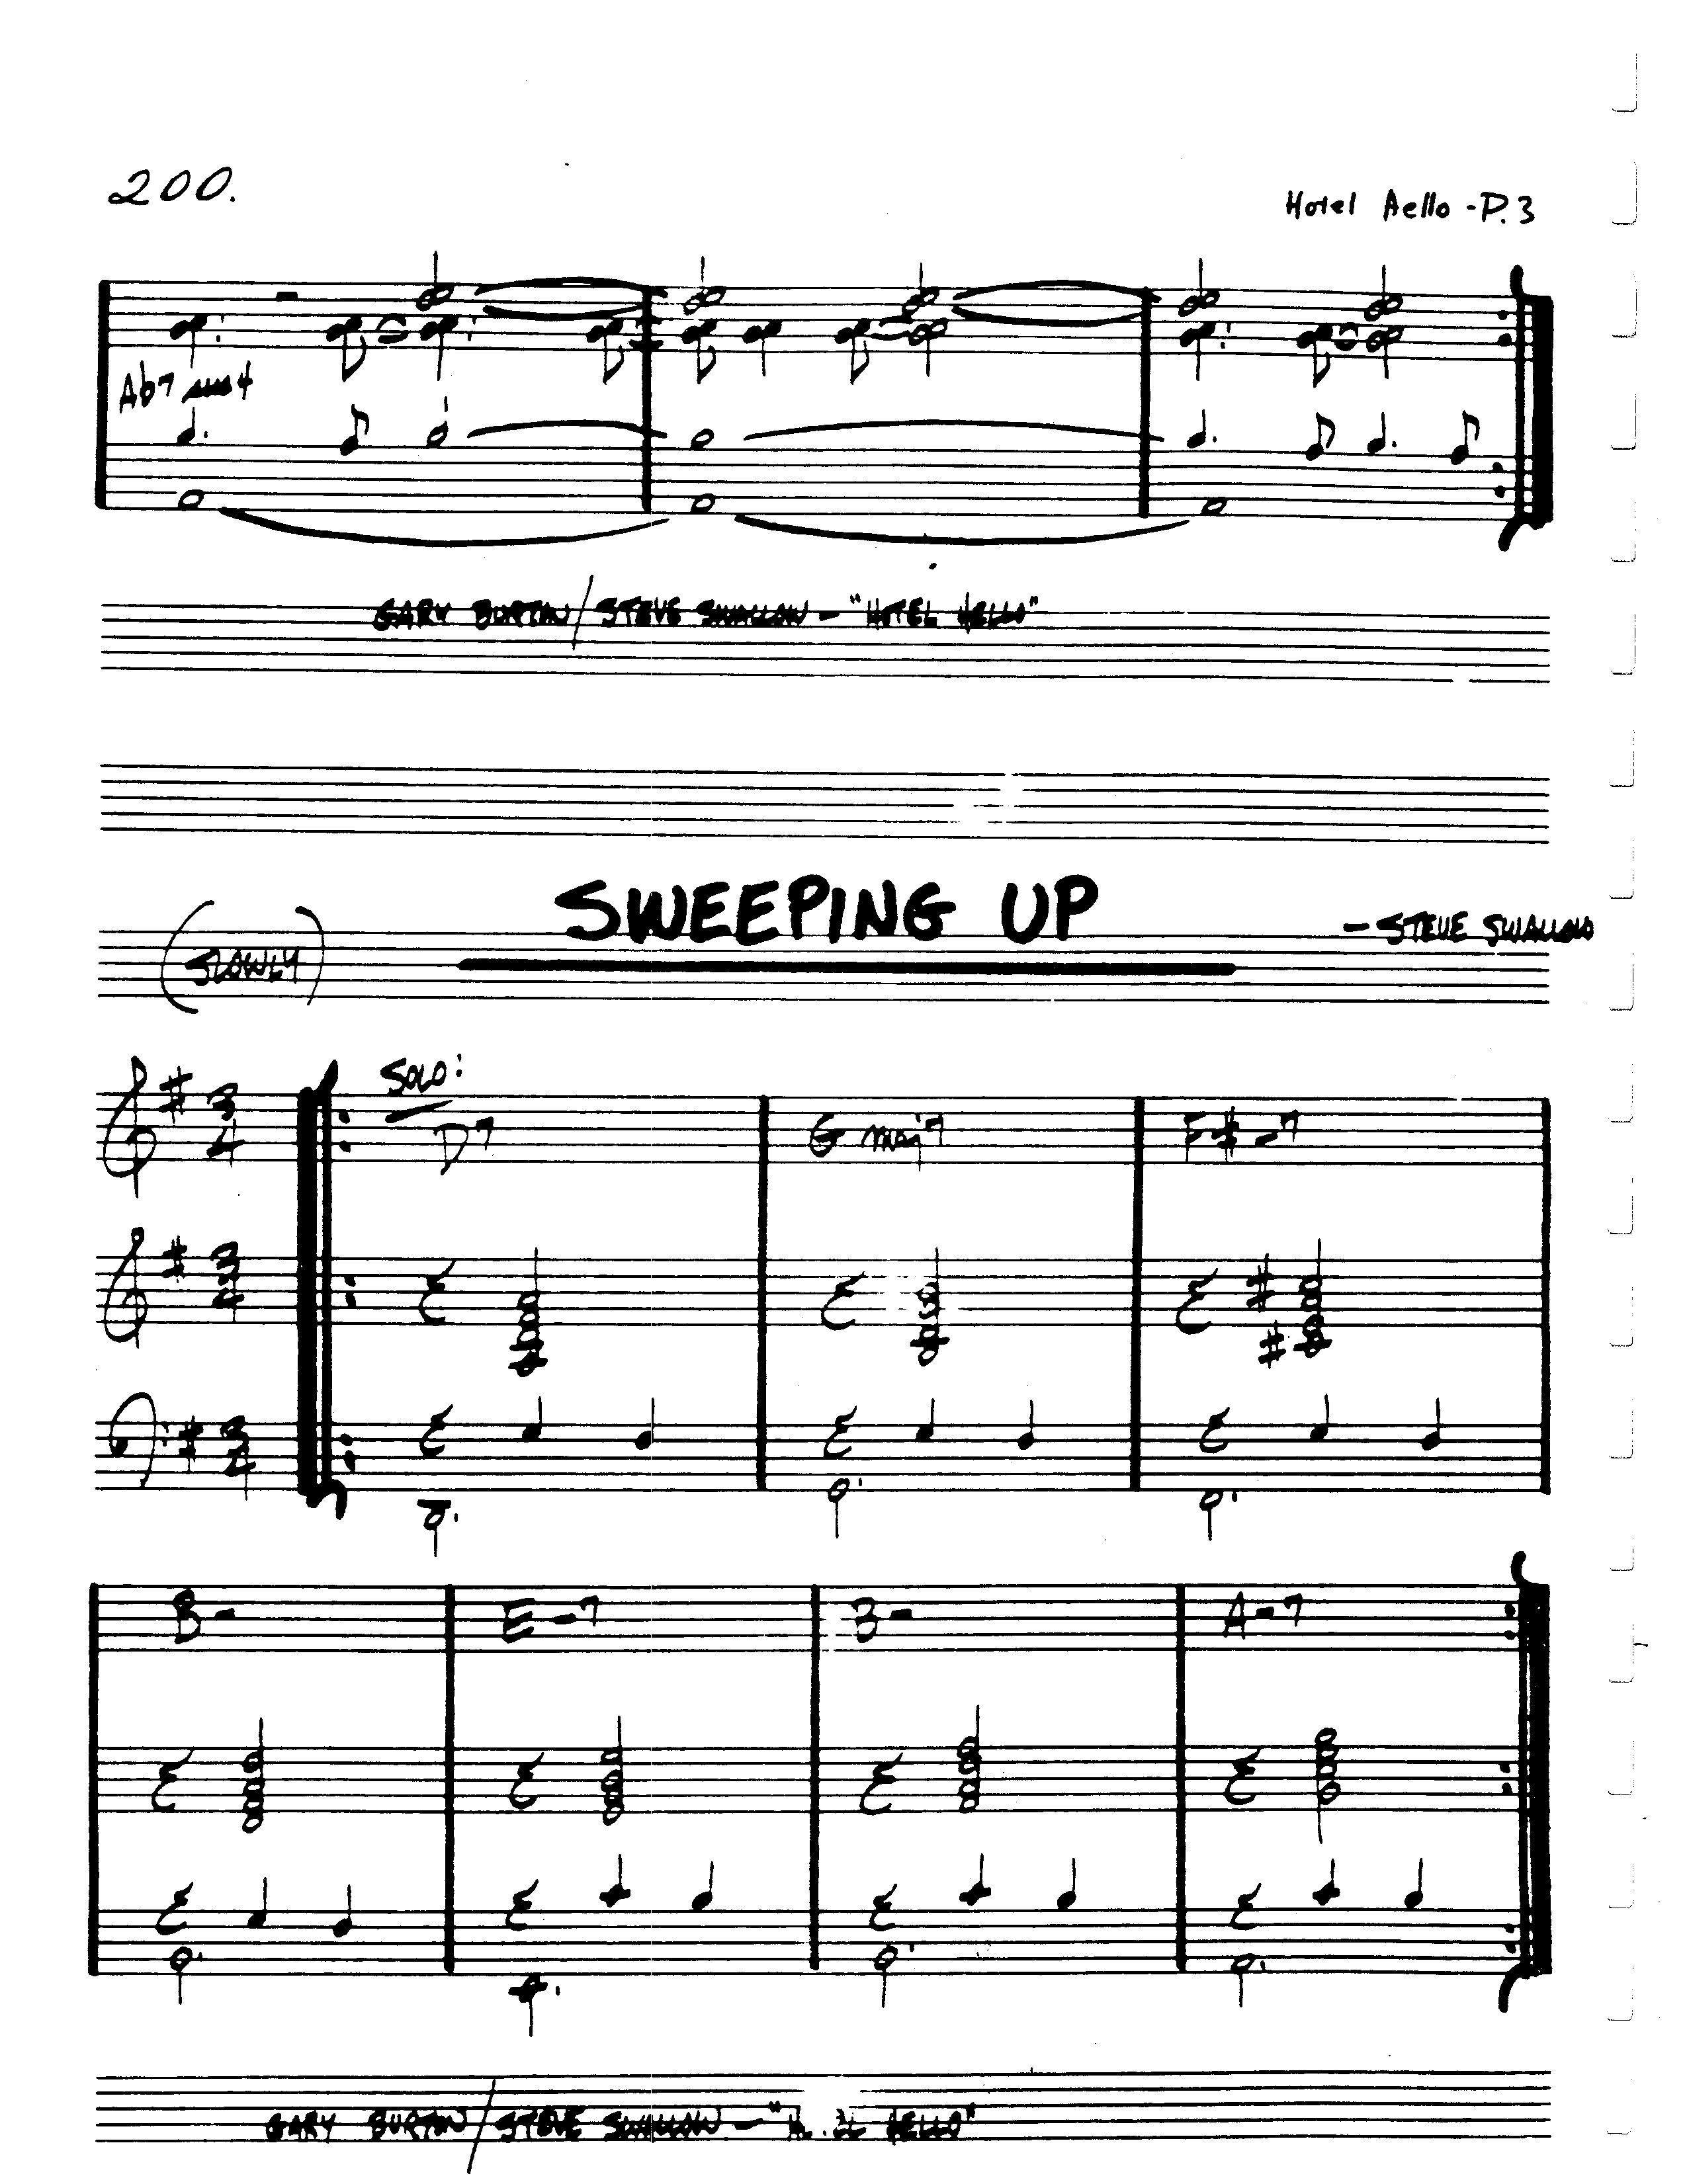 200.
Hotel Hello - P.3
Ab7 sus4
GARY BURTON / STEVE SWALLOW - "HOTEL HELLO"
SWEEPING UP
- STEVE SWALLOW
(SLOWLY)
SOLO:
D7 G maj7 F#-7
3 4
3 4
3 4
B- E-7 B- A-7
GARY BURTON / STEVE SWALLOW - "HOTEL HELLO"